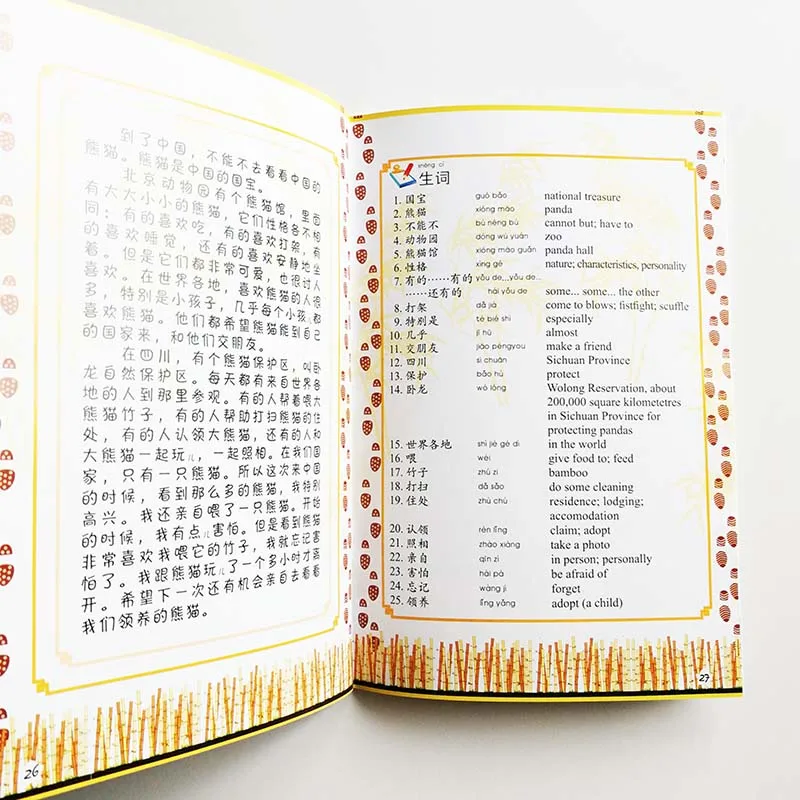 到了中国，不能不去看看中国的
熊猫。熊猫是中国的国宝。
北京动物园有个熊猫馆，里面
有大大小小的熊猫，它们性格各不相
同：有的喜欢吃，有的喜欢打架，有
的喜欢睡觉，还有的喜欢安静地坐
着。但是它们都非常可爱，也很讨人
喜欢。在世界各地，喜欢熊猫的人很
多，特别是小孩子，几乎每个小孩儿都
喜欢熊猫。他们都希望熊猫能到自己
的国家来，和他们交朋友。
在四川，有个熊猫保护区，叫卧
龙自然保护区。每天都有来自世界各
地的人到那里参观。有的人帮着喂大
熊猫竹子，有的人帮助打扫熊猫的住
处，有的人认领大熊猫，还有的人和
大熊猫一起玩儿，一起照相。在我们国
家，只有一只熊猫。所以这次来中国
的时候，看到那么多的熊猫，我特别
高兴。我还亲自喂了一只熊猫。开始
的时候，我有点儿害怕。但是看到熊猫
非常喜欢我喂它的竹子，我就忘记害
怕了。我跟熊猫玩儿了一个多小时才离
开。希望下一次还有机会亲自去看看
我们领养的熊猫。
26
shēng cí
生词
1. 国宝 guó bǎo national treasure
2. 熊猫 xióng māo panda
3. 不能不 bù néng bù cannot but; have to
4. 动物园 dòng wù yuán zoo
5. 熊猫馆 xióng māo guǎn panda hall
6. 性格 xìng gé nature; characteristics, personality
7. 有的……有的 yǒu de...yǒu de...
……还有的 hái yǒu de some... some... the other
8. 打架 dǎ jià come to blows; fistfight; scuffle
9. 特别是 tè bié shì especially
10. 几乎 jī hū almost
11. 交朋友 jiāo péngyou make a friend
12. 四川 sì chuān Sichuan Province
13. 保护 bǎo hù protect
14. 卧龙 wò lóng Wolong Reservation, about
200,000 square kilometetres
in Sichuan Province for
protecting pandas
15. 世界各地 shì jiè gè dì in the world
16. 喂 wèi give food to; feed
17. 竹子 zhú zi bamboo
18. 打扫 dǎ sǎo do some cleaning
19. 住处 zhù chù residence; lodging;
accomodation
20. 认领 rèn lǐng claim; adopt
21. 照相 zhào xiàng take a photo
22. 亲自 qīn zì in person; personally
23. 害怕 hài pà be afraid of
24. 忘记 wàng jì forget
25. 领养 lǐng yǎng adopt (a child)
27